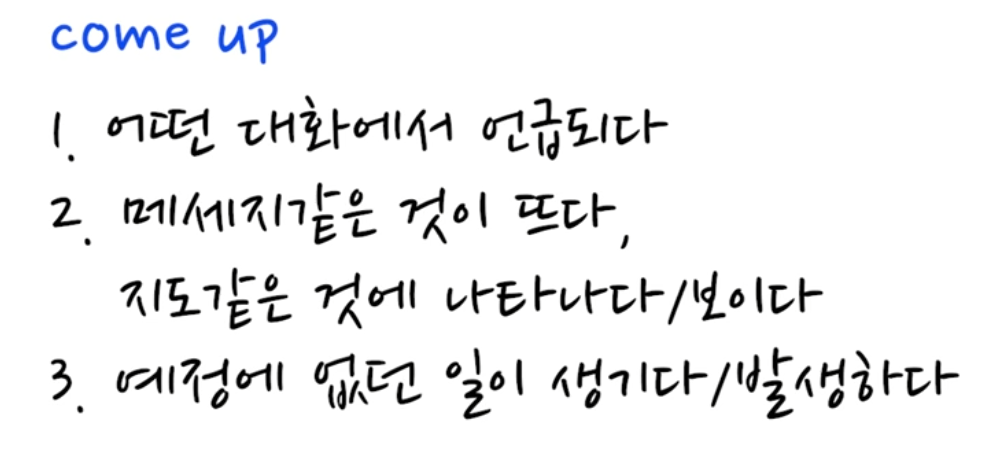 come up
1. 어떤 대화에서 언급되다
2. 메세지같은 것이 뜨다,
지도같은 것에 나타나다/보이다
3. 예정에 없던 일이 생기다/발생하다